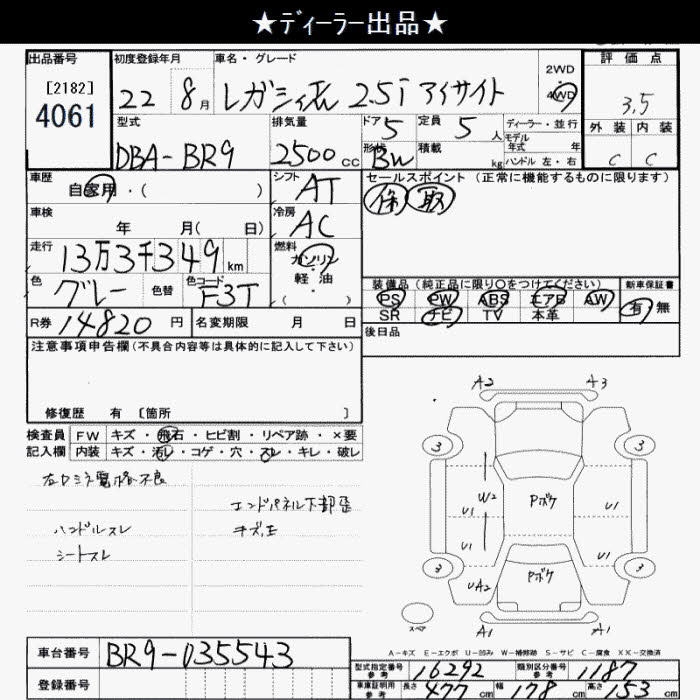 ★ディーラー出品★
出品番号 初度登録年月 車名・グレード 2WD 評価点
[2182] 4061 22 8月 レガシィ 2.5i アイサイト 4WD 3.5
型式 排気量 ドア 5 定員 5人 ディーラー・並行 外装 内装
DBA-BR9 2500cc 形状 BW 積載 kg モデル年式 年 ハンドル 左・右 C C
車歴 自家用・( ) シフト AT セールスポイント (正常に機能するものに限ります)
車検 年 月( 日) 冷房 AC 保 取
走行 13万3千349km 燃料 ガソリン・軽油・( )
色 グレー 色替 色コード F3T 装備品 (純正品に限り○をつけてください) 新車保証書
PS PW ABS エアB AW 有 無
R券 14820円 名変期限 月 日 SR ナビ TV 本革
注意事項申告欄 (不具合内容等は具体的に記入して下さい) 後日品
修復歴 有 [箇所 ]
検査員 FW キズ・飛石・ヒビ割・リペア跡・×要
記入欄 内装 キズ・汚レ・コゲ・穴・スレ・キレ・破レ
右ドミラ電格不良
エンドパネル下部歪
ハンドルスレ キズ、圧
シートスレ
A2 A3
3 3
W2 Pボケ
U1 U1
U1 U1
3 Pボケ 3
UA2
スペア A1 A1
A-キズ E-エクボ U-凹み W-補修跡 S-サビ C-腐食 XX-交換済
車台番号 BR9-035543 型式指定番号 参考 16292 類別区分番号 参考 1187
登録番号 車庫証明用 参考 長さ 477cm 幅 178cm 高さ 153cm